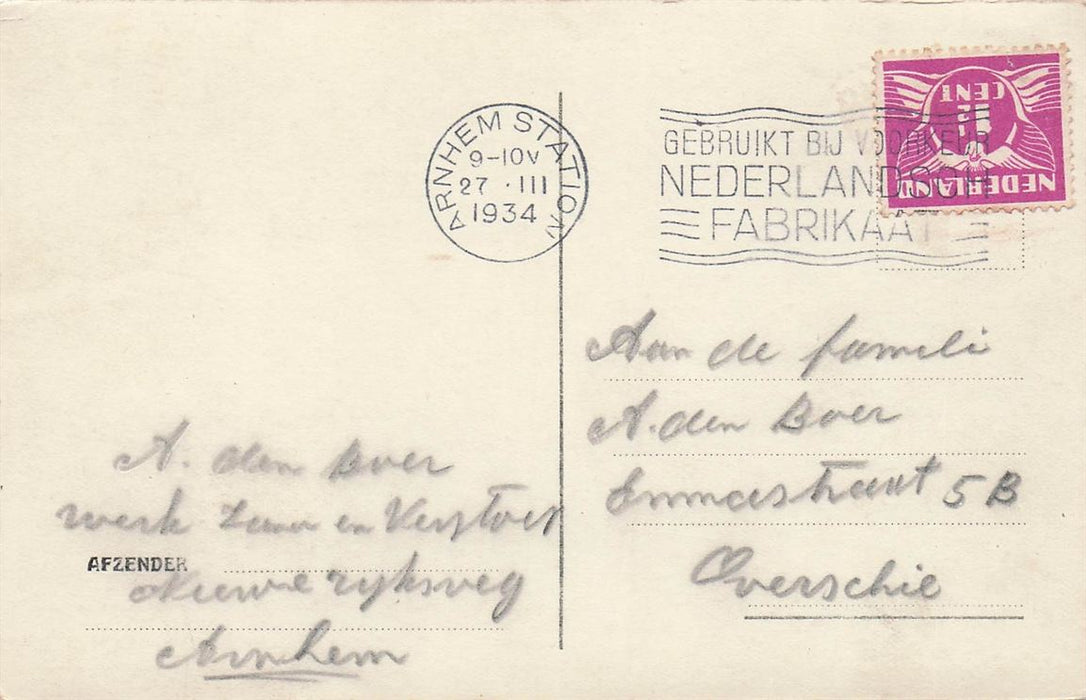 ARNHEM STATION
9-10V
27 · III
1934
GEBRUIKT BIJ VOORKEUR
NEDERLANDSCH
FABRIKAAT
NEDERLAND
1½
CENT
Aan de fameli
A. den Boer
Emmastraat 5B
Overschie
A. den Boer
werk en
AFZENDER
Nieuwe ryksweg
Arnhem